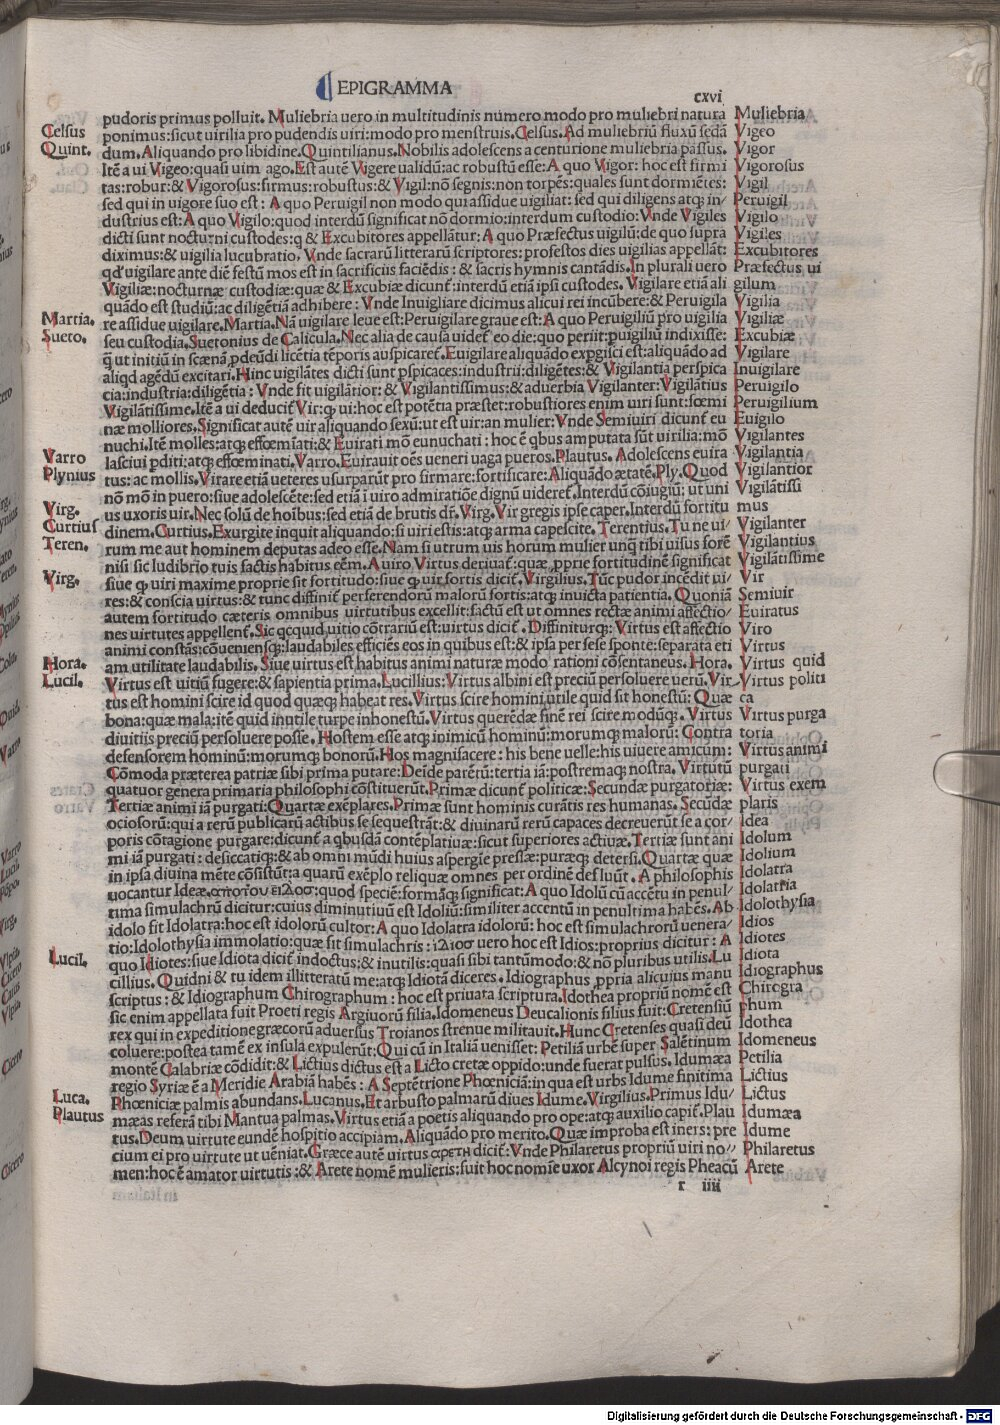 EPIGRAMMA
cxvi
pudoris primus polluit. Muliebria uero in multitudinis numero modo pro muliebri natura
ponimus: sicut uirilia pro pudendis uiri: modo pro menstruis. Celsus. Ad muliebriũ fluxũ sedã
dum. Aliquando pro libidine. Quintilianus. Nobilis adolescens a centurione muliebria passus.
Itẽ a ui Vigeo: quasi uim ago. Est autẽ Vigere ualidũ: ac robustũ esse: A quo Vigor: hoc est firmi
tas: robur: & Vigorosus: firmus: robustus: & Vigil: nõ segnis: non torpẽs: quales sunt dormiẽtes:
sed qui in uigore suo est: A quo Peruigil non modo qui assidue uigilat: sed qui diligens atq; in/
dustrius est: A quo Vigilo: quod interdũ significat nõ dormio: interdum custodio: Vnde Vigiles
dicti sunt nocturni custodes: q & Excubitores appellãtur: A quo Præfectus uigilũ: de quo supra
diximus: & uigilia lucubratio. Vnde sacrarũ litterarũ scriptores: profestos dies uigilias appellãt:
qd' uigilare ante diẽ festũ mos est in sacrificiis faciẽdis: & sacris hymnis cantãdis. In plurali uero
Vigiliæ: nocturnæ custodiæ: quæ & Excubiæ dicunt: interdũ etiã ipsi custodes. Vigilare etiã ali
quãdo est studiũ: ac diligẽtiã adhibere: Vnde Inuigliare dicimus alicui rei incũbere: & Peruigila
re assidue uigilare. Martia. Nã uigilare leue est: Peruigilare graue est: A quo Peruigiliũ pro uigilia
seu custodia. Suetonius de Caligula. Nec alia de causa uidet' eo die: quo periit: puigiliũ indixisse:
q̃ ut initiũ in scænã pdeũdi licẽtia tẽporis auspicaret'. Euigilare aliquãdo expgisci est: aliquãdo ad
aliqd agẽdũ excitari. Hinc uigilãtes dicti sunt pspicaces: industrii: diligẽtes: & Vigilantia perspica
cia: industria: diligẽtia: Vnde fit uigilãtior: & Vigilantissimus: & aduerbia Vigilanter: Vigilãtius
Vigilãtissime. Itẽ a ui deducit' Vir: q; ui: hoc est potẽtia præstet: robustiores enim uiri sunt: fœmi
næ molliores. Significat autẽ uir aliquando sexũ: ut est uir: an mulier: Vnde Semiuiri dicunt' eu
nuchi. Itẽ molles: atq; effœmĩati: & Euirati mõ eunuchati: hoc ẽ qbus amputata sũt uirilia: mõ
lasciui pditi: atq; effœminati. Varro. Euirauit oẽs ueneri uaga pueros. Plautus. Adolescens euira
tus: ac mollis. Virare etiã ueteres usurparũt pro firmare: fortificare: Aliquãdo ætatẽ. Ply. Quod
nõ mõ in puero: siue adolescẽte: sed etiã i uiro admiratiõe dignũ uideret'. Interdũ cõiugiũ: ut uni
us uxoris uir. Nec solũ de hoĩbus: sed etiã de brutis dr̃. Virg. Vir gregis ipse caper. Interdũ fortitu
dinem. Curtius. Exurgite inquit aliquando: si uiri estis: atq; arma capescite. Terentius. Tu ne ui/
rum me aut hominem deputas adeo esse. Nam si utrum uis horum mulier unq̃ tibi uisus forẽ
nisi sic ludibrio tuis factis habitus eẽm. A uiro Virtus deriuat': quæ pprie fortitudinẽ significat
siue q; uiri maxime proprie sit fortitudo: siue q; uir fortis dicit'. Virgilius. Tũc pudor incẽdit ui/
res: & conscia uirtus: & tunc diffinit' perferendorũ malorũ fortis: atq; inuicta patientia. Quoniã
autem fortitudo cæteris omnibus uirtutibus excellit: factũ est ut omnes rectæ animi affectio/
nes uirtutes appellent'. Sic qcquid uitio cõtrariũ est: uirtus dicit'. Diffiniturq;: Virtus est affectio
animi constãs: cõueniensq;: laudabiles efficiẽs eos in quibus est: & ipsa per sese sponte: separata eti
am utilitate laudabilis. Siue uirtus est habitus animi naturæ modo rationi cõsentaneus. Hora.
Virtus est uitiũ fugere: & sapientia prima. Lucillius: Virtus albini est preciũ persoluere uerũ. Vir
tus est homini scire id quod quæq; habeat res. Virtus scire homini utile quid sit honestũ: Quæ
bona: quæ mala: itẽ quid inutile turpe inhonestũ. Virtus querẽdæ finẽ rei scire modũq;. Virtus
diuitiis preciũ persoluere posse. Hostem esse atq; inimicũ hominũ: morumq; malorũ: Contra
defensorem hominũ: morumq; bonorũ. Hos magnifacere: his bene uelle: his uiuere amicum:
Cõmoda præterea patriæ sibi prima putare: Deĩde parẽtũ: tertia iã: postremaq; nostra. Virtutũ
quatuor genera primaria philosophi cõstituerũt. Primæ dicunt' politicæ: Secundæ purgatoriæ:
Tertiæ animi iã purgati: Quartæ exẽplares. Primæ sunt hominis curãtis res humanas. Secũdæ
ociosorũ: qui a rerũ publicarũ actibus se sequestrãt: & diuinarũ rerũ capaces decreuerũt se a cor/
poris cõtagione purgare: dicunt' a qbusdã contẽplatiuæ: sicut superiores actiuæ. Tertiæ sunt ani
mi iã purgati: desiccatiq;: & ab omni mũdi huius aspergie presſæ: puræq; detersi. Quartæ quæ
in ipsa diuina mẽte cõsistũt: a quarũ exẽplo reliquæ omnes per ordinẽ defluũt. A philosophis
uocantur Ideæ. απο του ειδοσ: quod speciẽ: formãq; significat: A quo Idolũ cũ accẽtu in penul/
tima simulachrũ dicitur: cuius diminutiuũ est Idoliũ: similiter accentũ in penultima habẽs. Ab
idolo fit Idolatra: hoc est idolorũ cultor: A quo Idolatra idolorũ: hoc est simulachrorũ uenera/
tio: Idolothysia immolatio: quæ fit simulachris: ιδιοσ uero hoc est Idios: proprius dicitur: A
quo Idiotes: siue Idiota dicit' indoctus: & inutilis: quasi sibi tantũmodo: & nõ pluribus utilis. Lu
cillius. Quidni & tu idem illitteratũ me: atq; Idiotã diceres. Idiographus ppria alicuius manu
scriptus: & Idiographum Chirographum: hoc est priuata scriptura. Idothea propriũ nomẽ est
sic enim appellata fuit Proeti regis Argiuorũ filia. Idomeneus Deucalionis filius fuit: Cretensiũ
rex qui in expeditione græcorũ aduersus Troianos strenue militauit. Hunc Cretenses quasi deũ
coluere: postea tamẽ ex insula expulerũt: Qui cũ in Italiã uenisset: Petiliã urbẽ super Salẽtinum
montẽ Calabriæ cõdidit: & Lictius dictus est a Licto cretæ oppido: unde fuerat pulsus. Idumæa
regio Syriæ ẽ a Meridie Arabiã habẽs: A Septẽtrione Phœniciã: in qua est urbs Idume finitima
Phœniciæ palmis abundans. Lucanus. Et arbusto palmarũ diues Idume. Virgilius. Primus Idu/
mæas referã tibi Mantua palmas. Virtus etiã a poetis aliquando pro ope: atq; auxilio capit'. Plau
tus. Deum uirtute eundẽ hospitio accipiam. Aliquãdo pro merito. Quæ improba est iners: pre
cium ei pro uirtute ut ueniat. Græce autẽ uirtus αρετη dicit': Vnde Philaretus propriũ uiri no/
men: hoc ẽ amator uirtutis: & Arete nomẽ mulieris: fuit hoc nomĩe uxor Alcynoi regis Pheacũ
r iiii
Celsus
Quint.
Martia.
Sueto.
Varro
Plynius
Virg.
Curtius
Teren.
Virg.
Hora.
Lucil.
Lucil.
Luca.
Plautus
Muliebria
Vigeo
Vigor
Vigorosus
Vigil
Peruigil
Vigilo
Vigiles
Excubitores
Præfectus ui
gilum
Vigilia
Vigiliæ
Excubiæ
Vigilare
Inuigilare
Peruigilo
Peruigilium
Euigilo
Vigilantes
Vigilantia
Vigilantior
Vigilãtissi
mus
Vigilanter
Vigilantius
Vigilãtissime
Vir
Semiuir
Euiratus
Viro
Virtus
Virtus quid
Virtus politi
ca
Virtus purga
toria
Virtus animi
purgati
Virtus exem
plaris
Idea
Idolum
Idolium
Idolatra
Idolatria
Idolothysia
Idios
Idiotes
Idiota
Idiographus
Chirogra
phum
Idothea
Idomeneus
Petilia
Lictius
Lictus
Idumæa
Idume
Philaretus
Arete
Digitalisierung gefördert durch die Deutsche Forschungsgemeinschaft - DFG